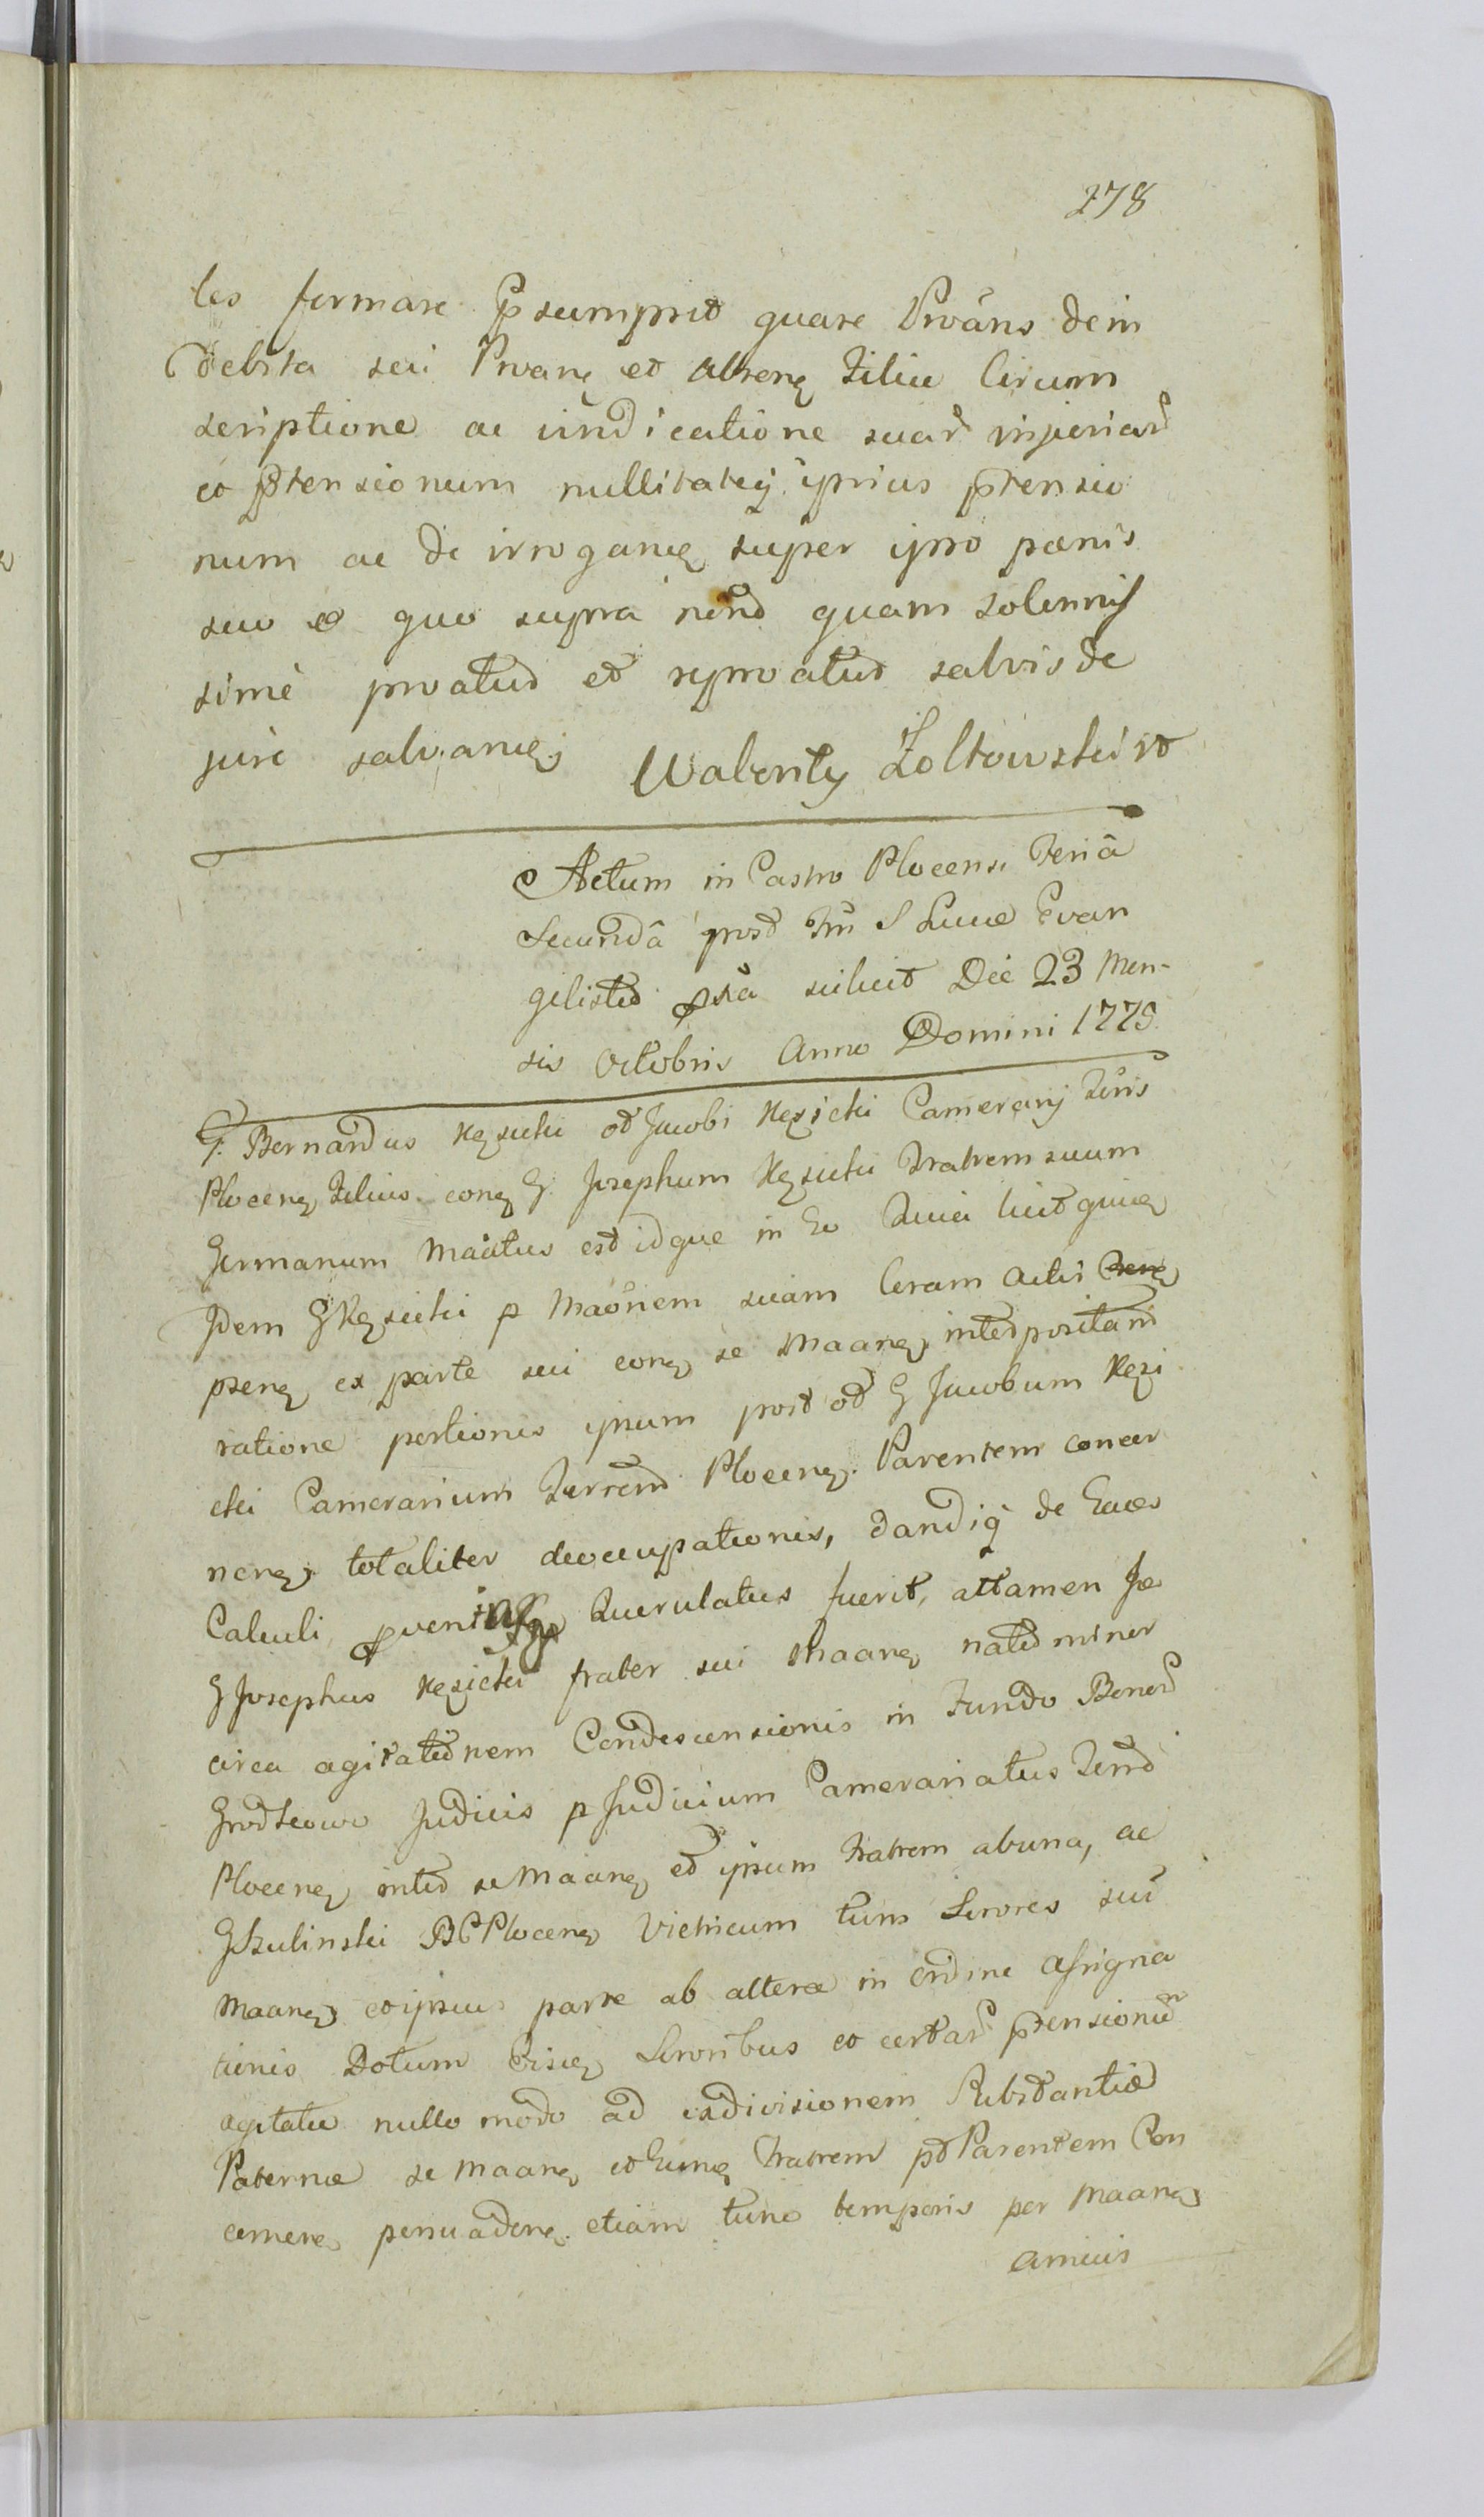 278
les formare Psumpsit quare Proãns de in
debita sui Proanę et alterię filiu Circum
scriptione ac vindicatione suar injuriar
et Ptensionum nullitateq ipsius Ptensio
num ac de irrogancę super ipso pænis
suo et quo supra nend quam solennis
sime proatur et reproatur salvis de
jure salvancę Walenty Zoltowski
Actum in Castro Plocensi Feriâ
Secundâ post Fm S Lucæ Evan
gelistæ pxa scilicet Die 23 Men-
sis Octobris Anno Domini 1775
G. Bernardus Kęsicki od Jacobi Kęsicki Camerarij Trris
Plocenę Filius conę G. Josephum Kęsicki Fratrem suum
Germanum Maãtus est idque in Eo Quia licet quicę
Idem G Kęsicki p Maõnem suam Coram Actis
psenę ex parte sui conę se Maanę interpositam
ratione portionis ipsum post od G Jacobum Kęsi
cki Camerarium Terren Plocenę Parentem concer
nenę totaliter deoccupationis, dandiq de Eaces
Calculi Querulatus fuerit, attamen Je
G Josephus Kęsicki frater sui Maanę natu minor
circa agitationem Condescensionis in Fundo Bonor
Grodkowo Judicis p Judicium Camerariatus Terrr
Plocenę inter se Maanę et ipsum Fratrem ab una, ac
G Szulinski BC Plocenę Vitricum tum Sorores sui
Maanę et ipsius parte ab altera in ordine Assigna
tionis Dotum Eiscę Sororibus et certar Ptensionum
agitatæ nullo modo ad exdivisionem Substantiæ
Paternæ se Maanę et Eunę Fratrem pt Parentem Con
cernenę persuadenę etiam tunc temporis per Maanę
amicis